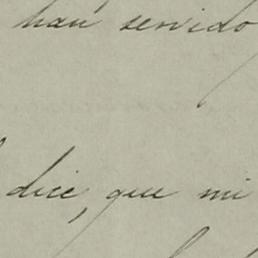 han servido
dice, que mi